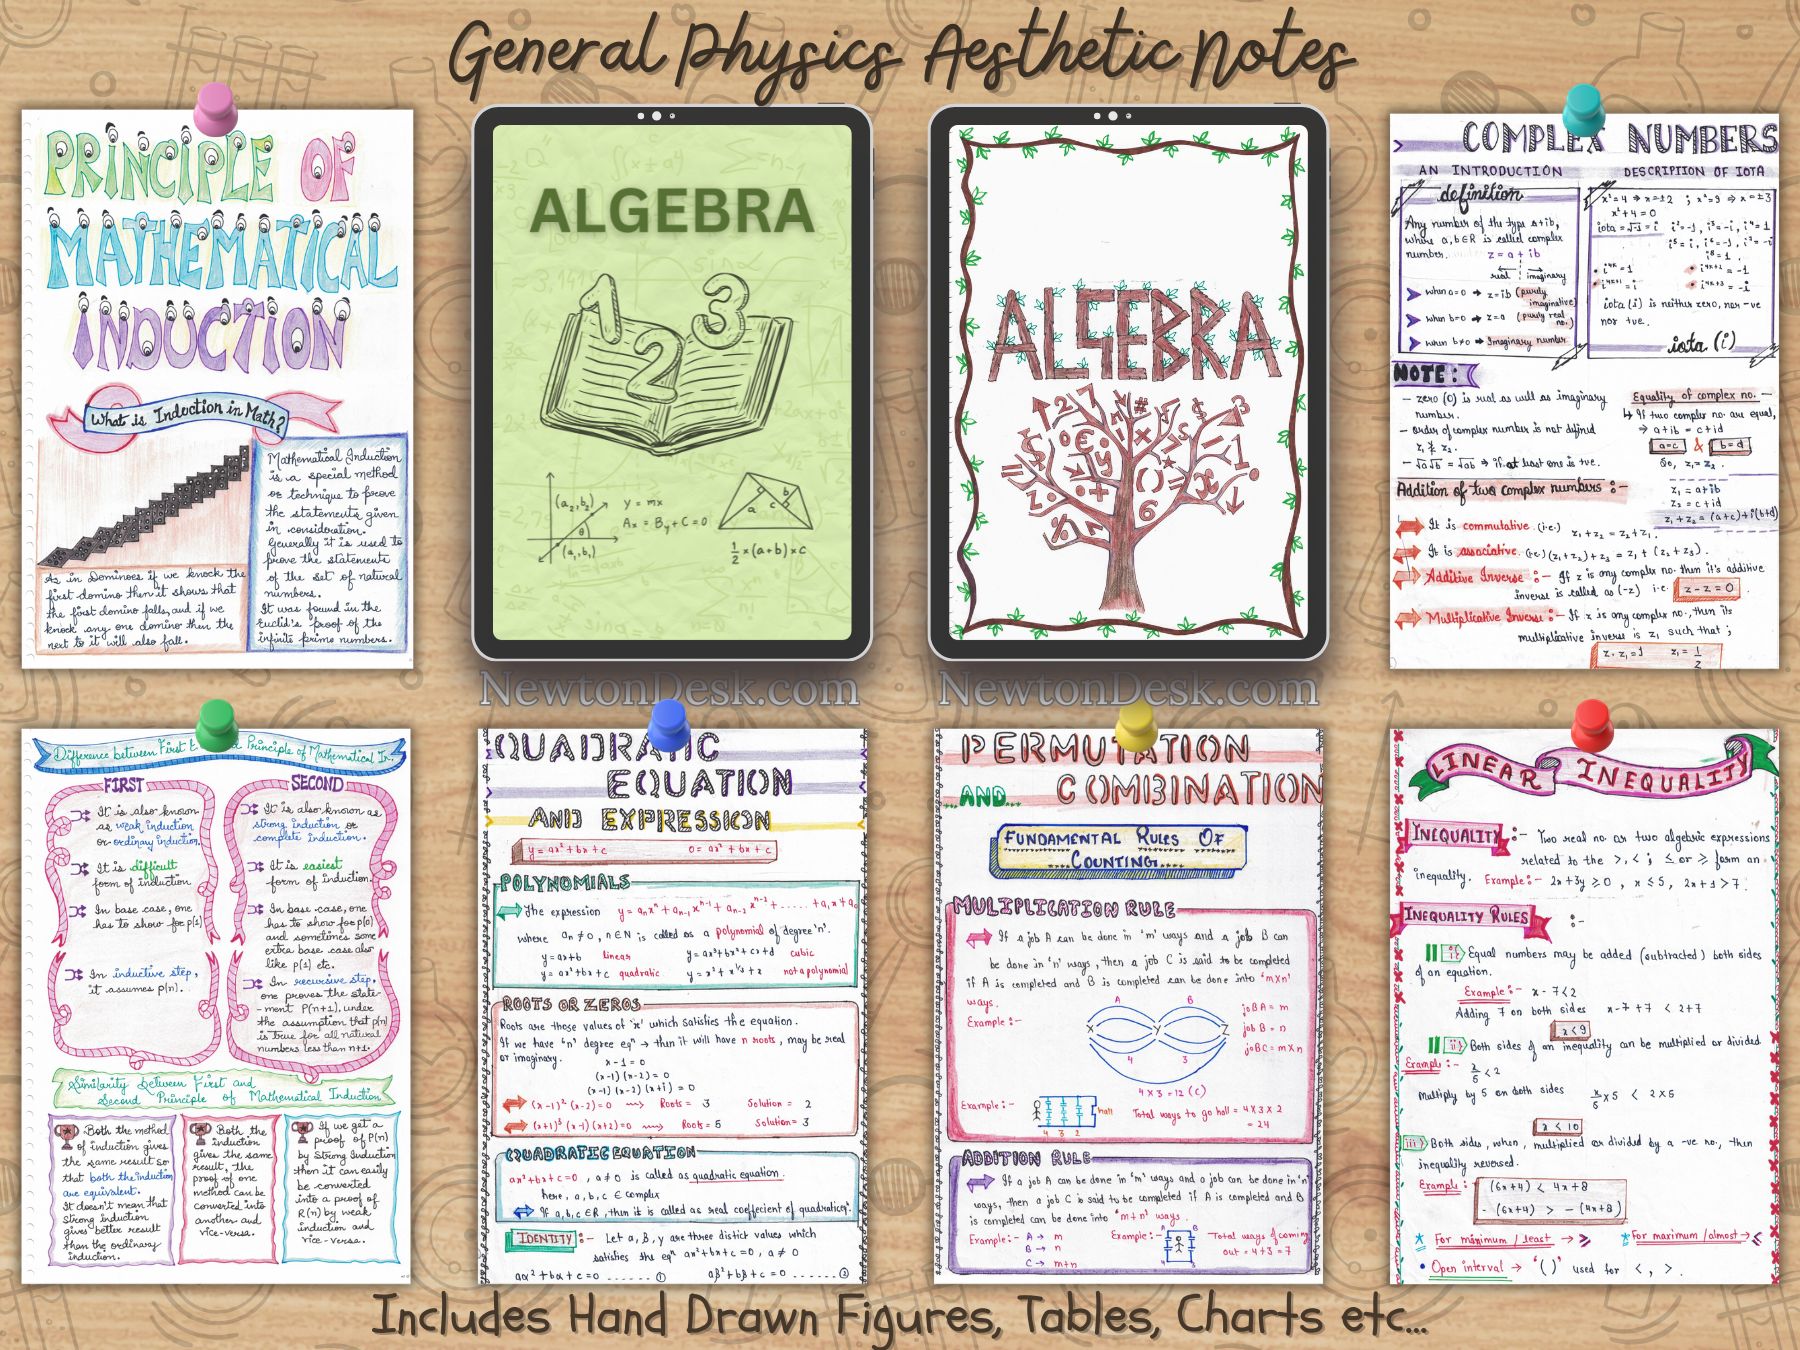 General Physics Aesthetic Notes
PRINCIPLE OF
MATHEMATICAL
INDUCTION
What is Induction in Math?
Mathematical Induction
is a special method
or technique to prove
the statements given
in consideration.
Generally it is used to
prove the statements
of the set of natural
numbers.
It was found in the
Euclid's proof of the
infinite prime numbers.
As in Dominoes if we knock the
first domino then it shows that
the first domino falls, and if we
knock any one domino then the
next to it will also fall.
ALGEBRA
1 2 3
(a₂, b₂)
y = mx
Aₓ = Bᵧ + C = 0
θ
(a₁, b₁)
a b c
½ × (a+b) × c
ALGEBRA
COMPLEX NUMBERS
AN INTRODUCTION
definition
Any number of the type a+ib,
where a, b ∈ R is called complex
number.
z = a + ib
real imaginary
when a=0 → z=ib (purely imaginative)
when b=0 → z=a (purely real no.)
when b≠0 → Imaginary number
DESCRIPTION OF IOTA
x²=4 ⇒ x=±2 ; x²=9 ⇒ x=±3
x²+4=0
iota = √-1 = i
iota (i) is neither zero, nor -ve
nor +ve.
iota (i)
NOTE:
- zero (0) is real as well as imaginary
number.
- order of complex number is not defined
- √a√b = √ab ⇒ if at least one is +ve.
Equality of complex no. -
↳ If two complex no. are equal,
⇒ a+ib = c+id
a=c & b=d
So, z₁ = z₂
Addition of two complex numbers :-
z₁ = a+ib
z₂ = c+id
z₁+z₂ = (a+c)+i(b+d)
It is commutative (i.e.) z₁+z₂ = z₂+z₁.
It is associative (i.e.) (z₁+z₂)+z₃ = z₁+(z₂+z₃).
Additive Inverse :- If z is any complex no. then it's additive
inverse is called as (-z) i.e. z-z=0
Multiplicative Inverse :- If z is any complex no., then its
multiplicative inverse is z₁ such that ;
z·z₁=1 z₁ = 1/z
NewtonDesk.com
NewtonDesk.com
Difference between First Principle of Mathematical In.
FIRST
It is also known
as weak induction
or ordinary induction.
It is difficult
form of induction
In base case, one
has to show for p(1)
In inductive step,
it assumes p(n).
SECOND
It is also known as
strong induction or
complete induction.
It is easiest
form of induction.
In base case, one
has to show for p(0)
and sometimes some
extra base case also
like p(1) etc.
In recursive step,
one proves the state-
-ment P(n+1), under
the assumption that p(n)
is true for all natural
numbers less than n+1.
Similarity between First and
Second Principle of Mathematical Induction
Both the method
of induction gives
the same result so
that both the induction
are equivalent.
It doesn't mean that
strong induction
gives better result
than the ordinary
induction.
Both the
induction
gives the same
result, the
proof of one
method can be
converted into
another and
vice-versa.
If we get a
proof of P(n)
by Strong induction
then it can easily
be converted
into a proof of
R(n) by weak
induction and
vice-versa.
QUADRATIC
EQUATION
AND EXPRESSION
y = ax² + bx + c 0 = ax² + bx + c
POLYNOMIALS
The expression y = aₙxⁿ + aₙ₋₁xⁿ⁻¹ + aₙ₋₂xⁿ⁻² + ..... + a₁x + a₀
where aₙ ≠ 0, n ∈ N is called as a polynomial of degree 'n'.
y = ax+b linear y = ax³+bx²+cx+d cubic
y = ax²+bx+c quadratic not a polynomial
ROOTS OR ZEROS
Roots are those values of 'x' which satisfies the equation.
If we have 'n' degree eqⁿ → then it will have n roots, may be real
or imaginary.
x-1 = 0
(x-1)(x-2) = 0
(x-1)(x-2)(x+i) = 0
(x-1)²(x-2)=0 Roots = 3 Solution = 2
(x+1)³(x-1)(x+2)=0 Roots = 5 Solution = 3
QUADRATIC EQUATION
ax²+bx+c=0, a≠0 is called as quadratic equation.
here, a, b, c ∈ complex
If a, b, c ∈ R, then it is called as real coefficient of quadratic eqⁿ.
IDENTITY :- Let α, β, γ are three distict values which
satisfies the eqⁿ ax²+bx+c=0, a≠0
aα²+bα+c=0 ....... ① aβ²+bβ+c=0 ....... ②
PERMUTATION
AND... COMBINATION
FUNDAMENTAL RULES OF
COUNTING...
MULTIPLICATION RULE
If a job A can be done in 'm' ways and a job B can
be done in 'n' ways, then a job C is said to be completed
if A is completed and B is completed can be done into 'm×n'
ways.
Example :-
A B
X Y Z
4 3
4 × 3 = 12 (C)
job A = m
job B = n
job C = m×n
Example :-
hall
4 3 2
Total ways to go hall = 4×3×2
= 24
ADDITION RULE
If a job A can be done in 'm' ways and a job can be done in 'n'
ways, then a job C is said to be completed if A is completed and B
is completed can be done into 'm+n' ways.
Example :- A → m
B → n
C → m+n
Example :-
Total ways of coming
out = 4+3 = 7
LINEAR INEQUALITY
INEQUALITY :- Two real no. or two algebraic expressions
related to the >, < ; ≤ or ≥ form an
inequality. Example :- 2x+3y ≥ 0 , x ≤ 5, 2x+1 > 7
INEQUALITY RULES :-
i) Equal numbers may be added (subtracted) both sides
of an equation.
Example :- x-7<2
Adding 7 on both sides x-7+7 < 2+7
x<9
ii) Both sides of an inequality can be multiplied or divided
Example :-
x/5 < 2
Multiply by 5 on both sides x/5 × 5 < 2×5
x < 10
iii) Both sides, when, multiplied or divided by a -ve no., then
inequality reversed.
Example :- (6x+4) < 4x+8
-(6x+4) > -(4x+8)
For minimum / least → ≥ For maximum / almost → ≤
Open interval → '( )' used for <, >.
Includes Hand Drawn Figures, Tables, Charts etc...